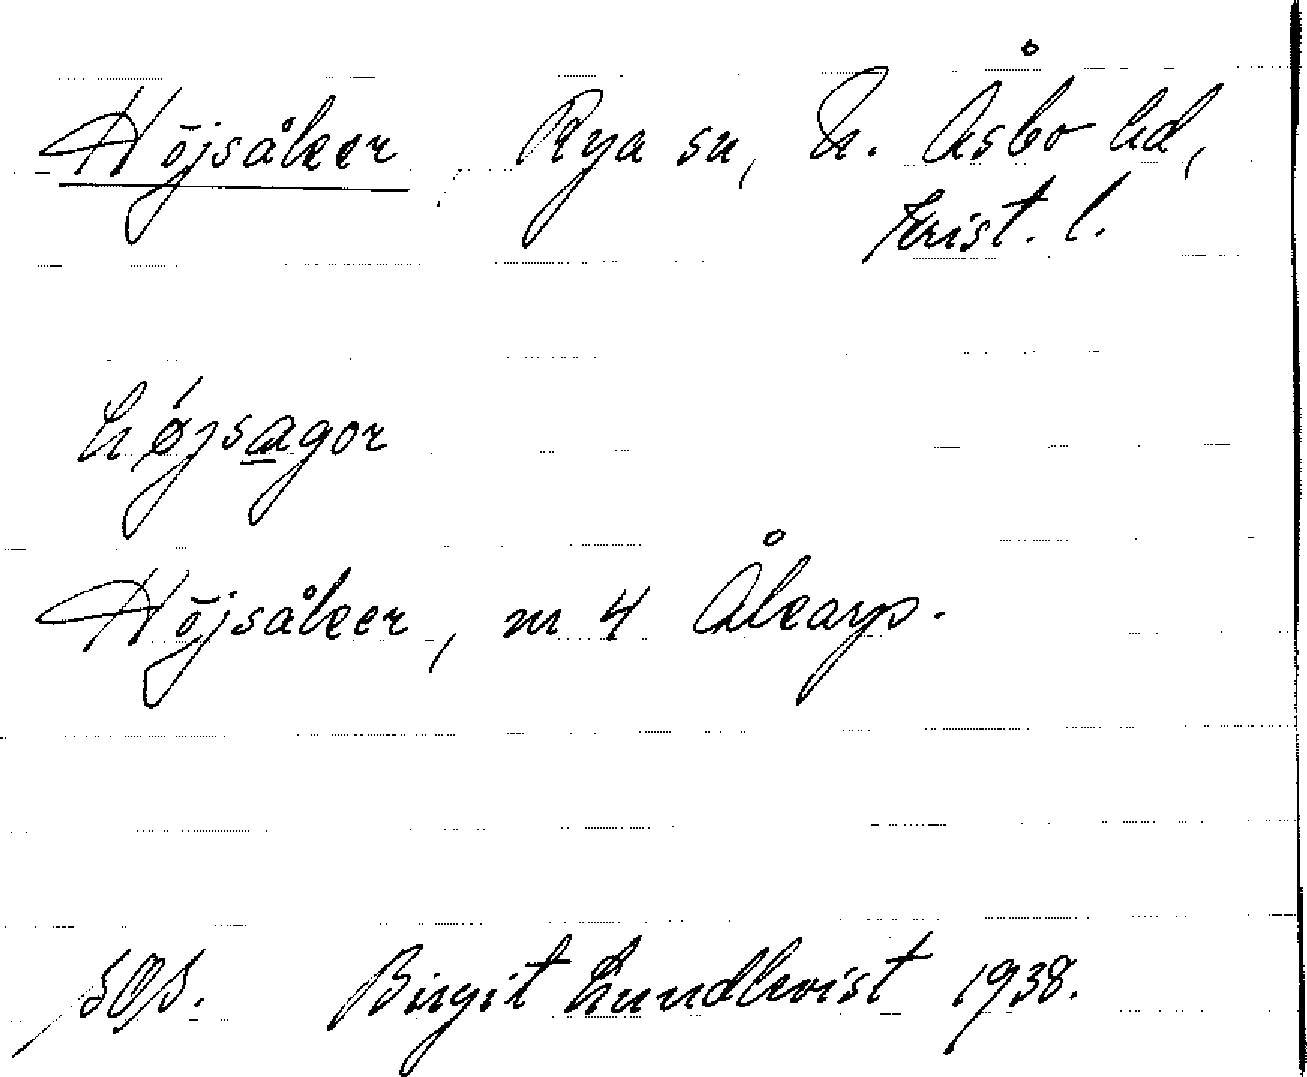 Höjsåker, Rya sn, N. Åsbo hd,
Krist. l.
højsagor
Höjsåker, nr 4 Åkarp.
Birgit Lundkvist 1938.